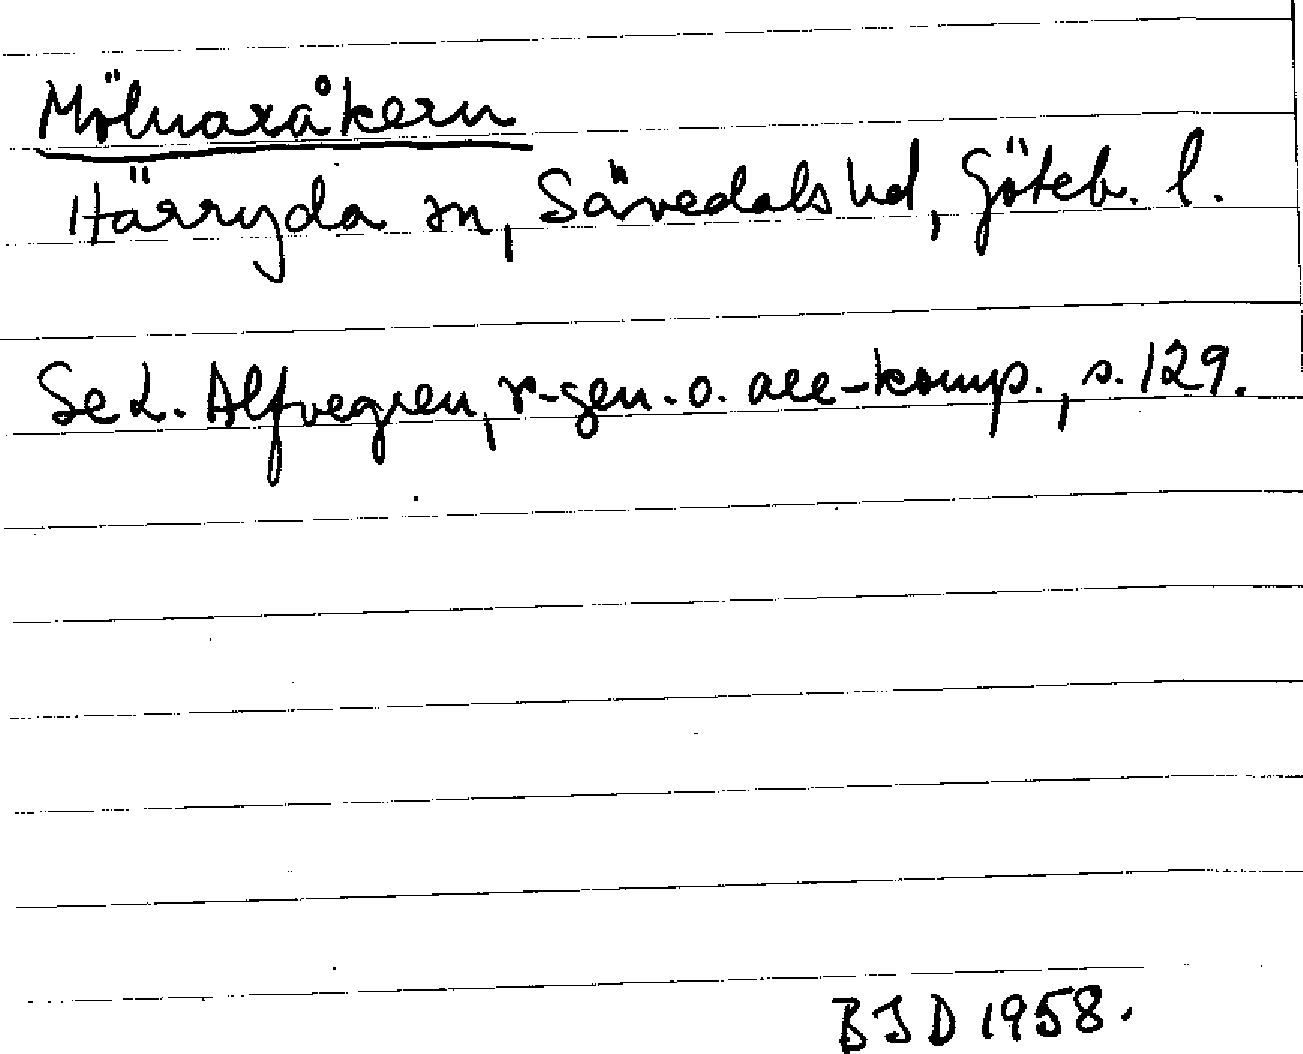 Mölnaråkern
Härryda sn, Sävedals hd, Göteb. l.
Se L. Alfvegren, r-gen. o. ale-komp., s. 129.
BJD 1958.